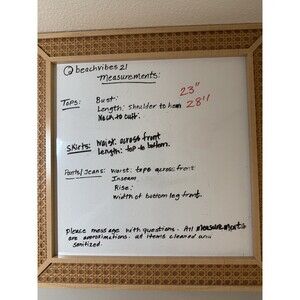 @beachvibes21
Measurements:
Tops: Bust: 23"
Length: Shoulder to hem 28"
Neck to cuff:
Skirts: Waist: across front
Length: top to bottom.
Pants/Jeans: Waist: tops across front
Inseam
Rise:
Width of bottom leg front.
Please message with questions. All measurements
are approximations. all items cleaned and
sanitized.